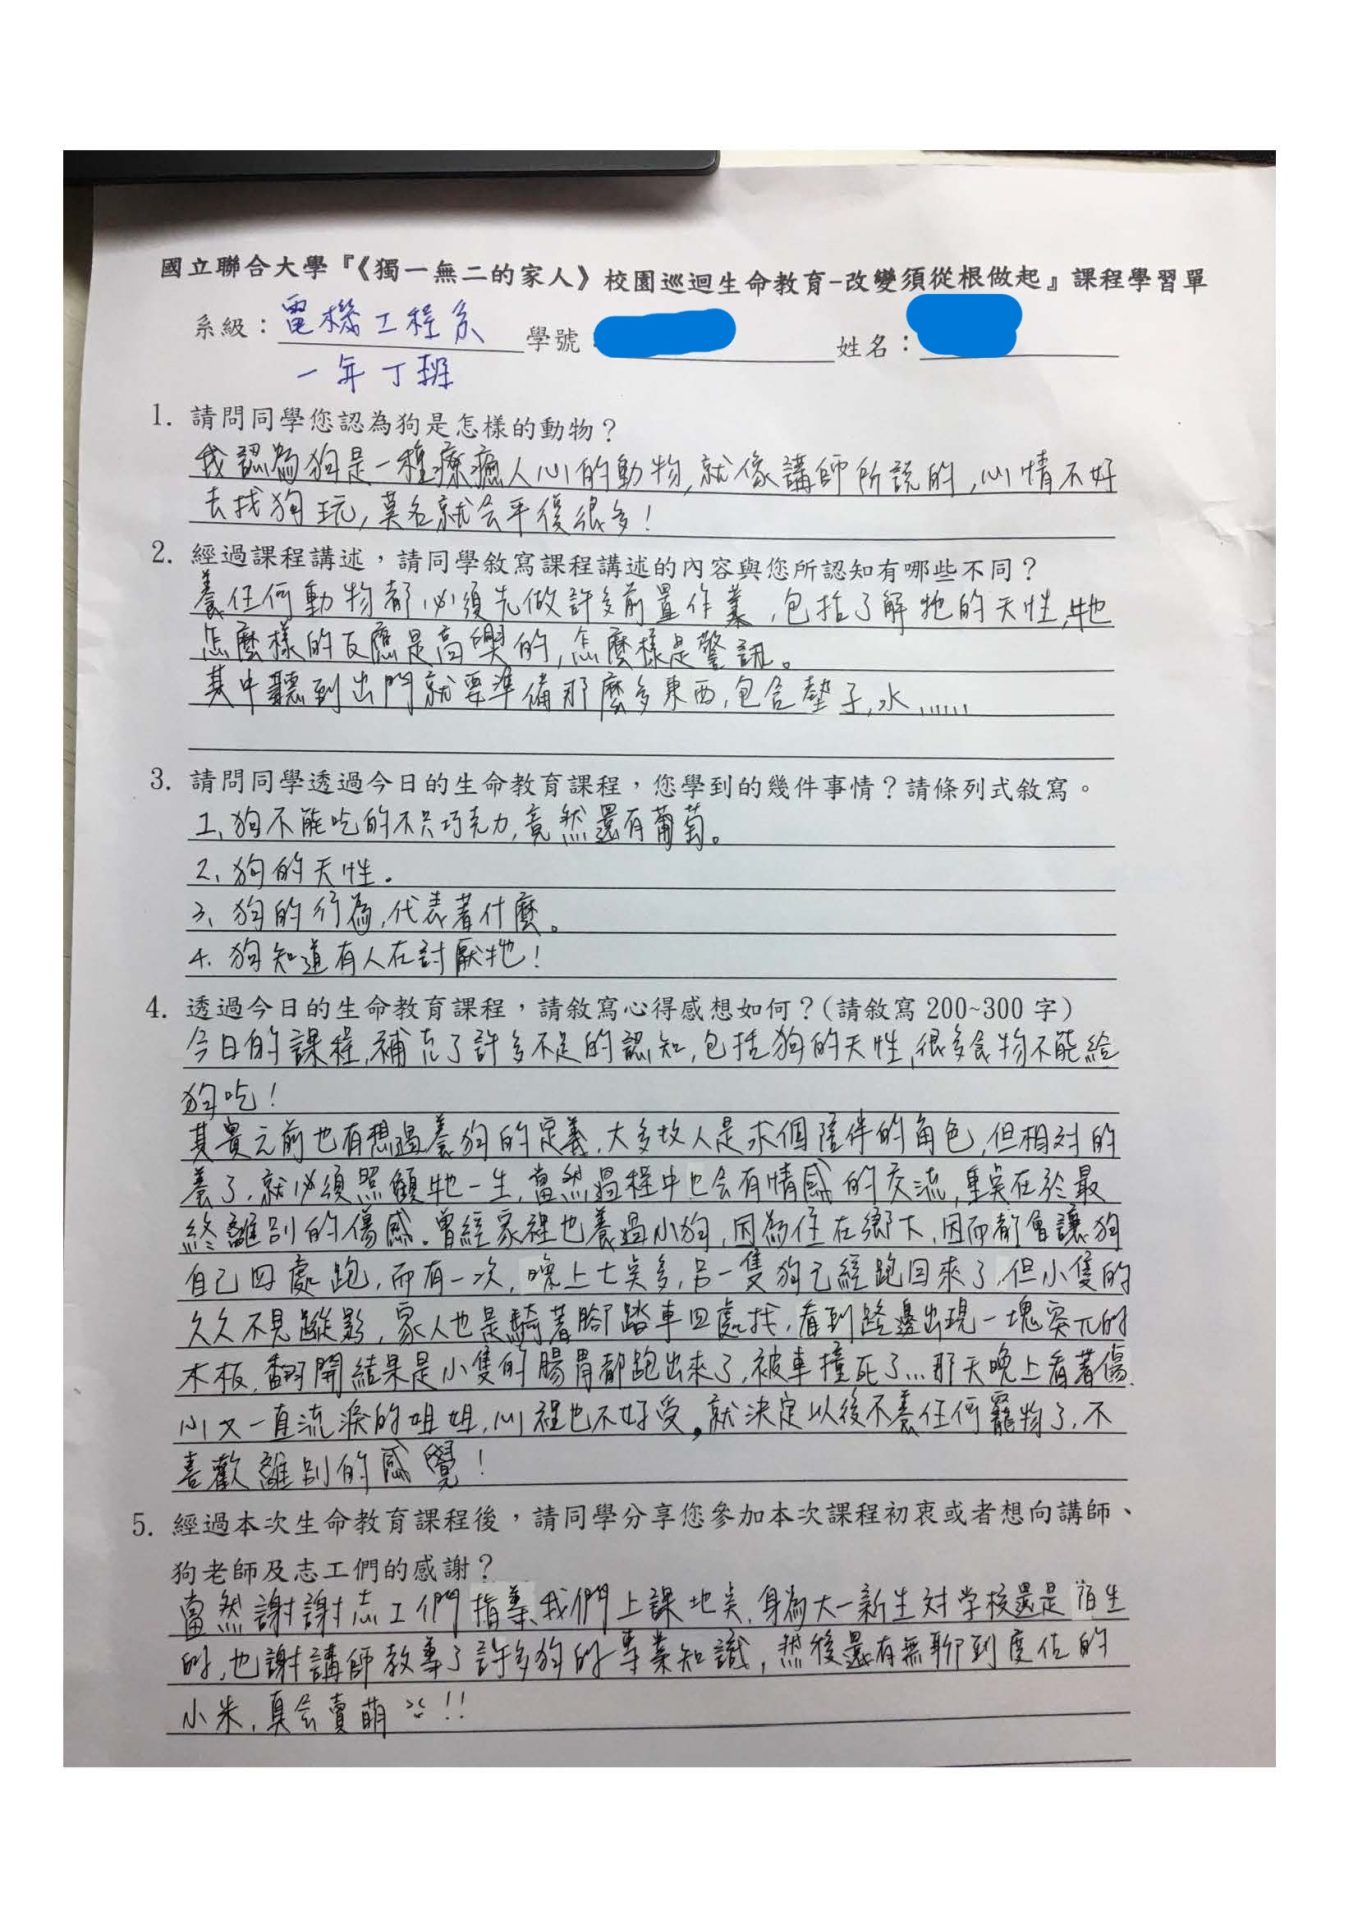 國立聯合大學『《獨一無二的家人》校園巡迴生命教育-改變須從根做起』課程學習單
系級：電機工程系 學號： 姓名：
一年丁班
1. 請問同學您認為狗是怎樣的動物？
我認為狗是一種療癒人心的動物,就像講師所說的,心情不好
去找狗玩,莫名就会平復很多!
2. 經過課程講述，請同學敘寫課程講述的內容與您所認知有哪些不同？
養任何動物都必須先做許多前置作業,包括了解牠的天性,牠
怎麼樣的反應是高興的,怎麼樣是警訊。
其中聽到出門就要準備那麼多東西,包含墊子,水……
3. 請問同學透過今日的生命教育課程，您學到的幾件事情？請條列式敘寫。
1、狗不能吃的不只巧克力,竟然還有葡萄。
2、狗的天性.
3、狗的行為,代表著什麼。
4. 狗知道有人在討厭牠!
4. 透過今日的生命教育課程，請敘寫心得感想如何？(請敘寫 200~300 字)
今日的課程,補充了許多不足的認知,包括狗的天性,很多食物不能給
狗吃!
其實之前也有想過養狗的定義,大多故人是求個陪伴的角色,但相对的
養了,就必須照顧牠一生,當然過程中也会有情感的交流,重点在於最
終離別的傷感.曾經家裡也養過小狗,因為住在鄉下,因而都會讓狗
自己四處跑,而有一次,晚上七点多,另一隻狗已經跑回來了,但小隻的
久久不見蹤影,家人也是騎著腳踏車四處找,看到路邊出現一塊突兀的
木板,翻開結果是小隻的腸胃都跑出來了,被車撞死了…那天晚上看著傷
心又一直流淚的姐姐,心裡也不好受,就決定以後不養任何寵物了,不
喜歡離別的感覺!
5. 經過本次生命教育課程後，請同學分享您參加本次課程初衷或者想向講師、
狗老師及志工們的感謝？
當然謝謝志工們指棊我們上課地点,身為大一新生对学校還是陌生
的,也謝講師教導了許多狗的專業知識,然後還有無聊到度估的
小米,真会賣萌 !!